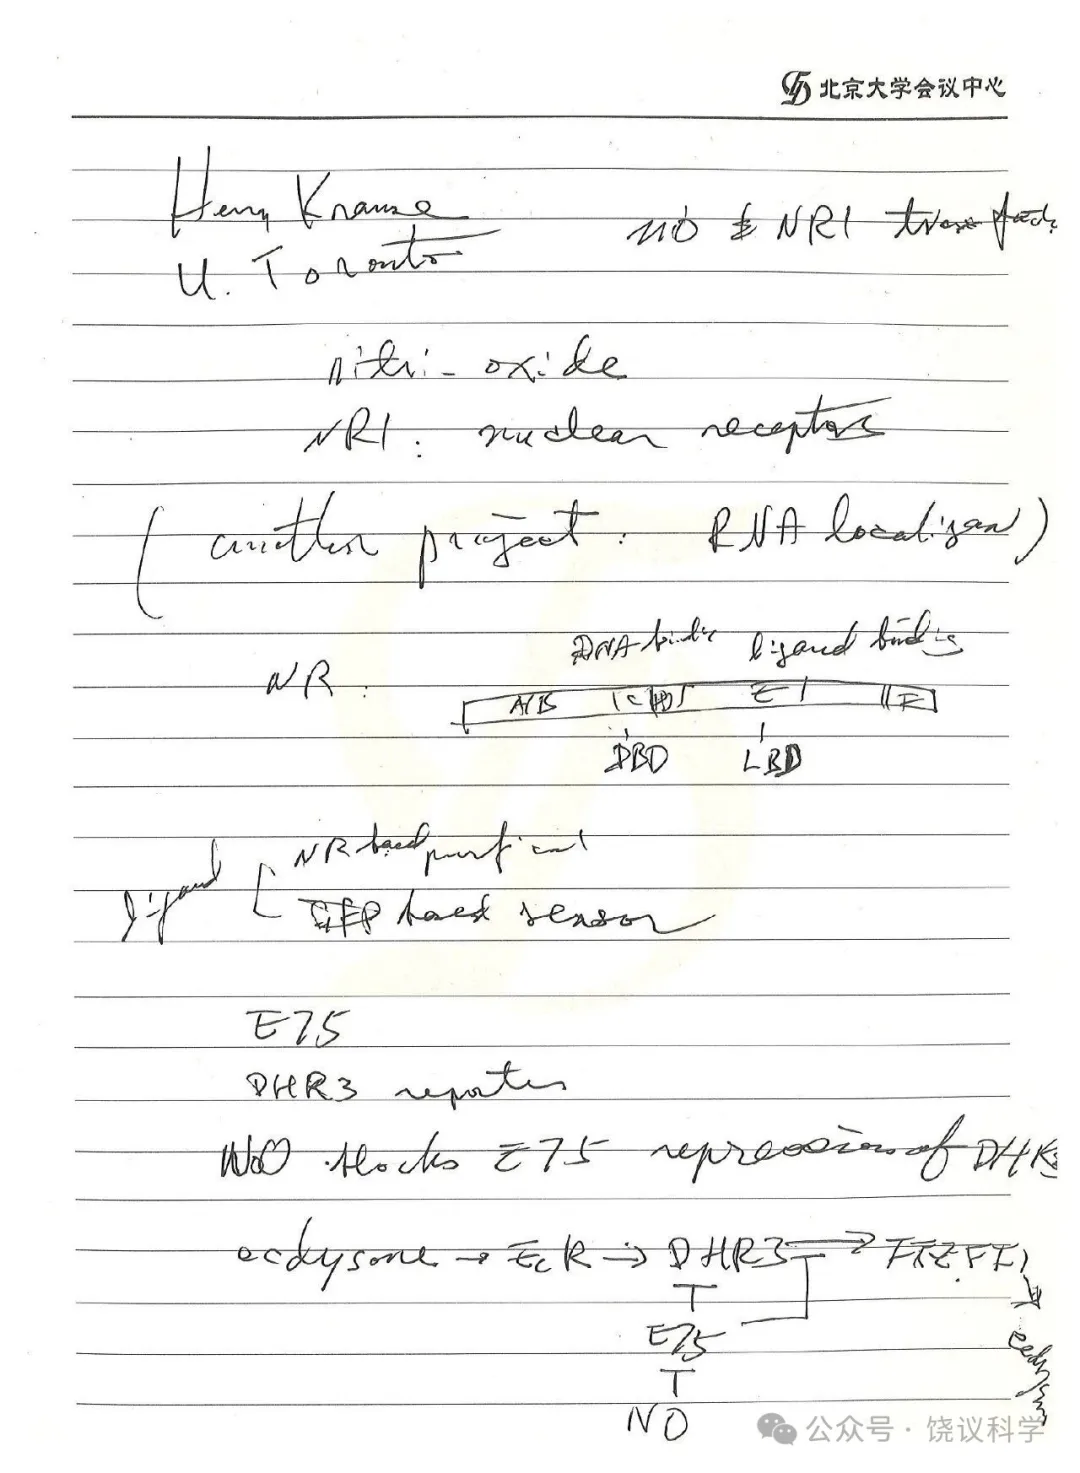 北京大学会议中心
Henry Krause
NO & NR1
U. Toronto
nitri- oxide
NR1: nuclear receptors
(another project: RNA localizan)
DNA bindi ligand bindig
NR:
A/B C D E F
DBD LBD
NR based purificat
ligand
GFP based sensor
E75
DHR3 reporter
NO blocks E75 repression of DHR3
ecdysone → EcR → DHR3 → FTZ.F1
E75
NO
公众号 · 饶议科学